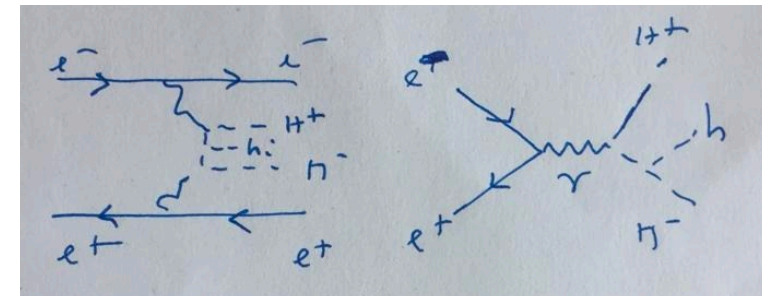 e⁻ e⁻
H⁺
h
H⁻
e⁺ e⁺
e⁻
H⁺
h
γ
e⁺
H⁻